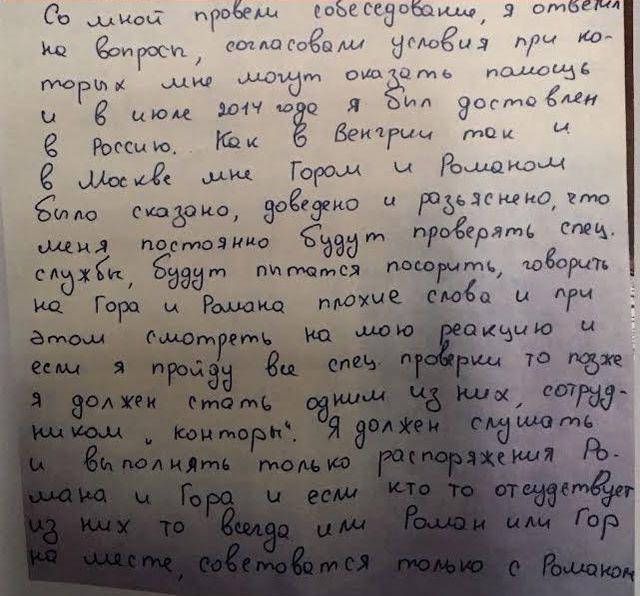 Со мной провели собеседование, я ответил
на вопросы, согласовали условия при ко-
торых мне могут оказать помощь
и в июле 2014 года я был доставлен
в Россию. Как в Венгрии так и
в Москве мне Гором и Романом
было сказано, доведено и разьяснено, что
меня постоянно будут проверять спец.
службы, будут пытатся посорить, говорить
на Гора и Романа плохие слова и при
этом смотреть на мою реакцию и
если я пройду все спец. проверки то позже
я должен стать одним из них, сотруд-
ником „конторы“. Я должен слушать
и выполнять только распоряжения Ро-
мана и Гора и если кто то отсудствует
из них то всегда или Роман или Гор
на месте, советоватся только с Романом